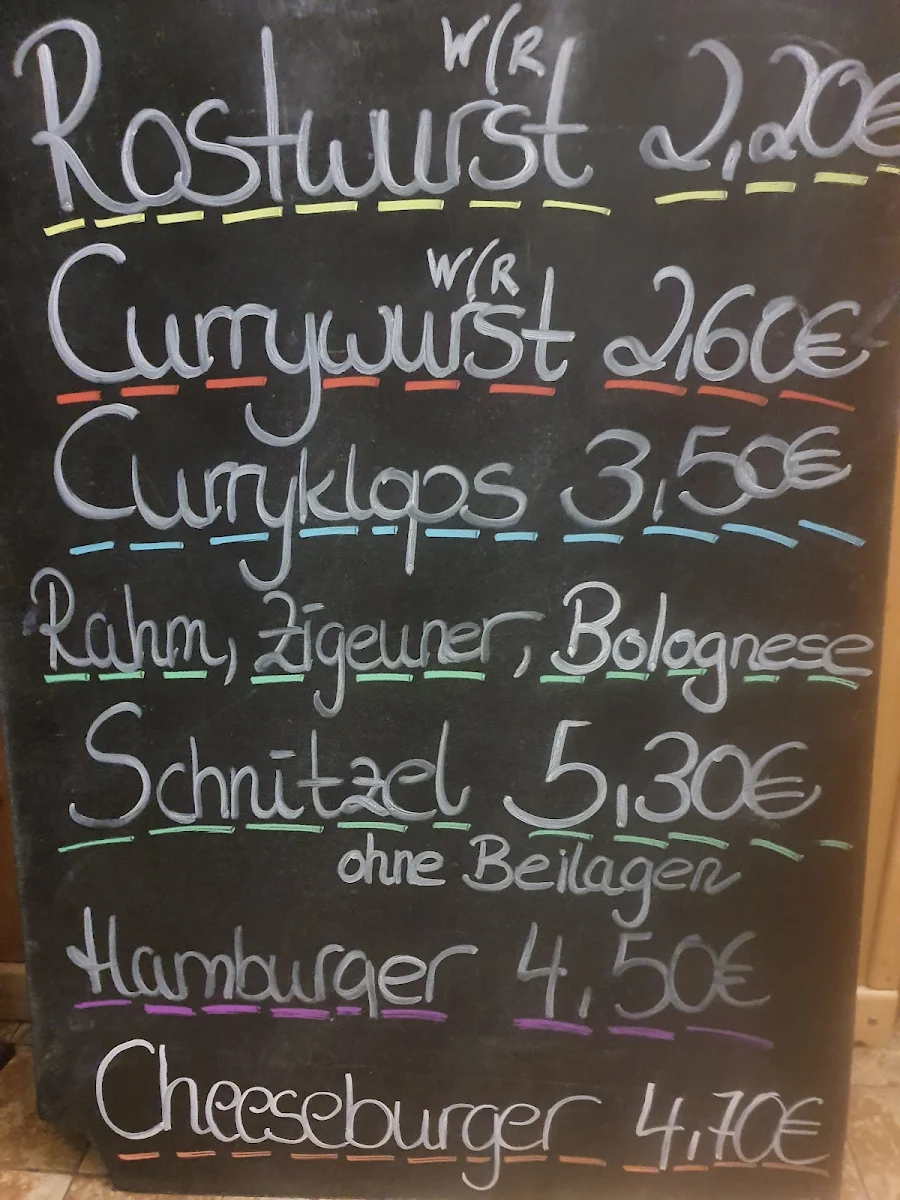 W/R
Rostwurst 2,20€
W/R
Currywurst 2,60€
Curryklops 3,50€
Rahm, Zigeuner, Bolognese
Schnitzel 5,30€
ohne Beilagen
Hamburger 4,50€
Cheeseburger 4,70€